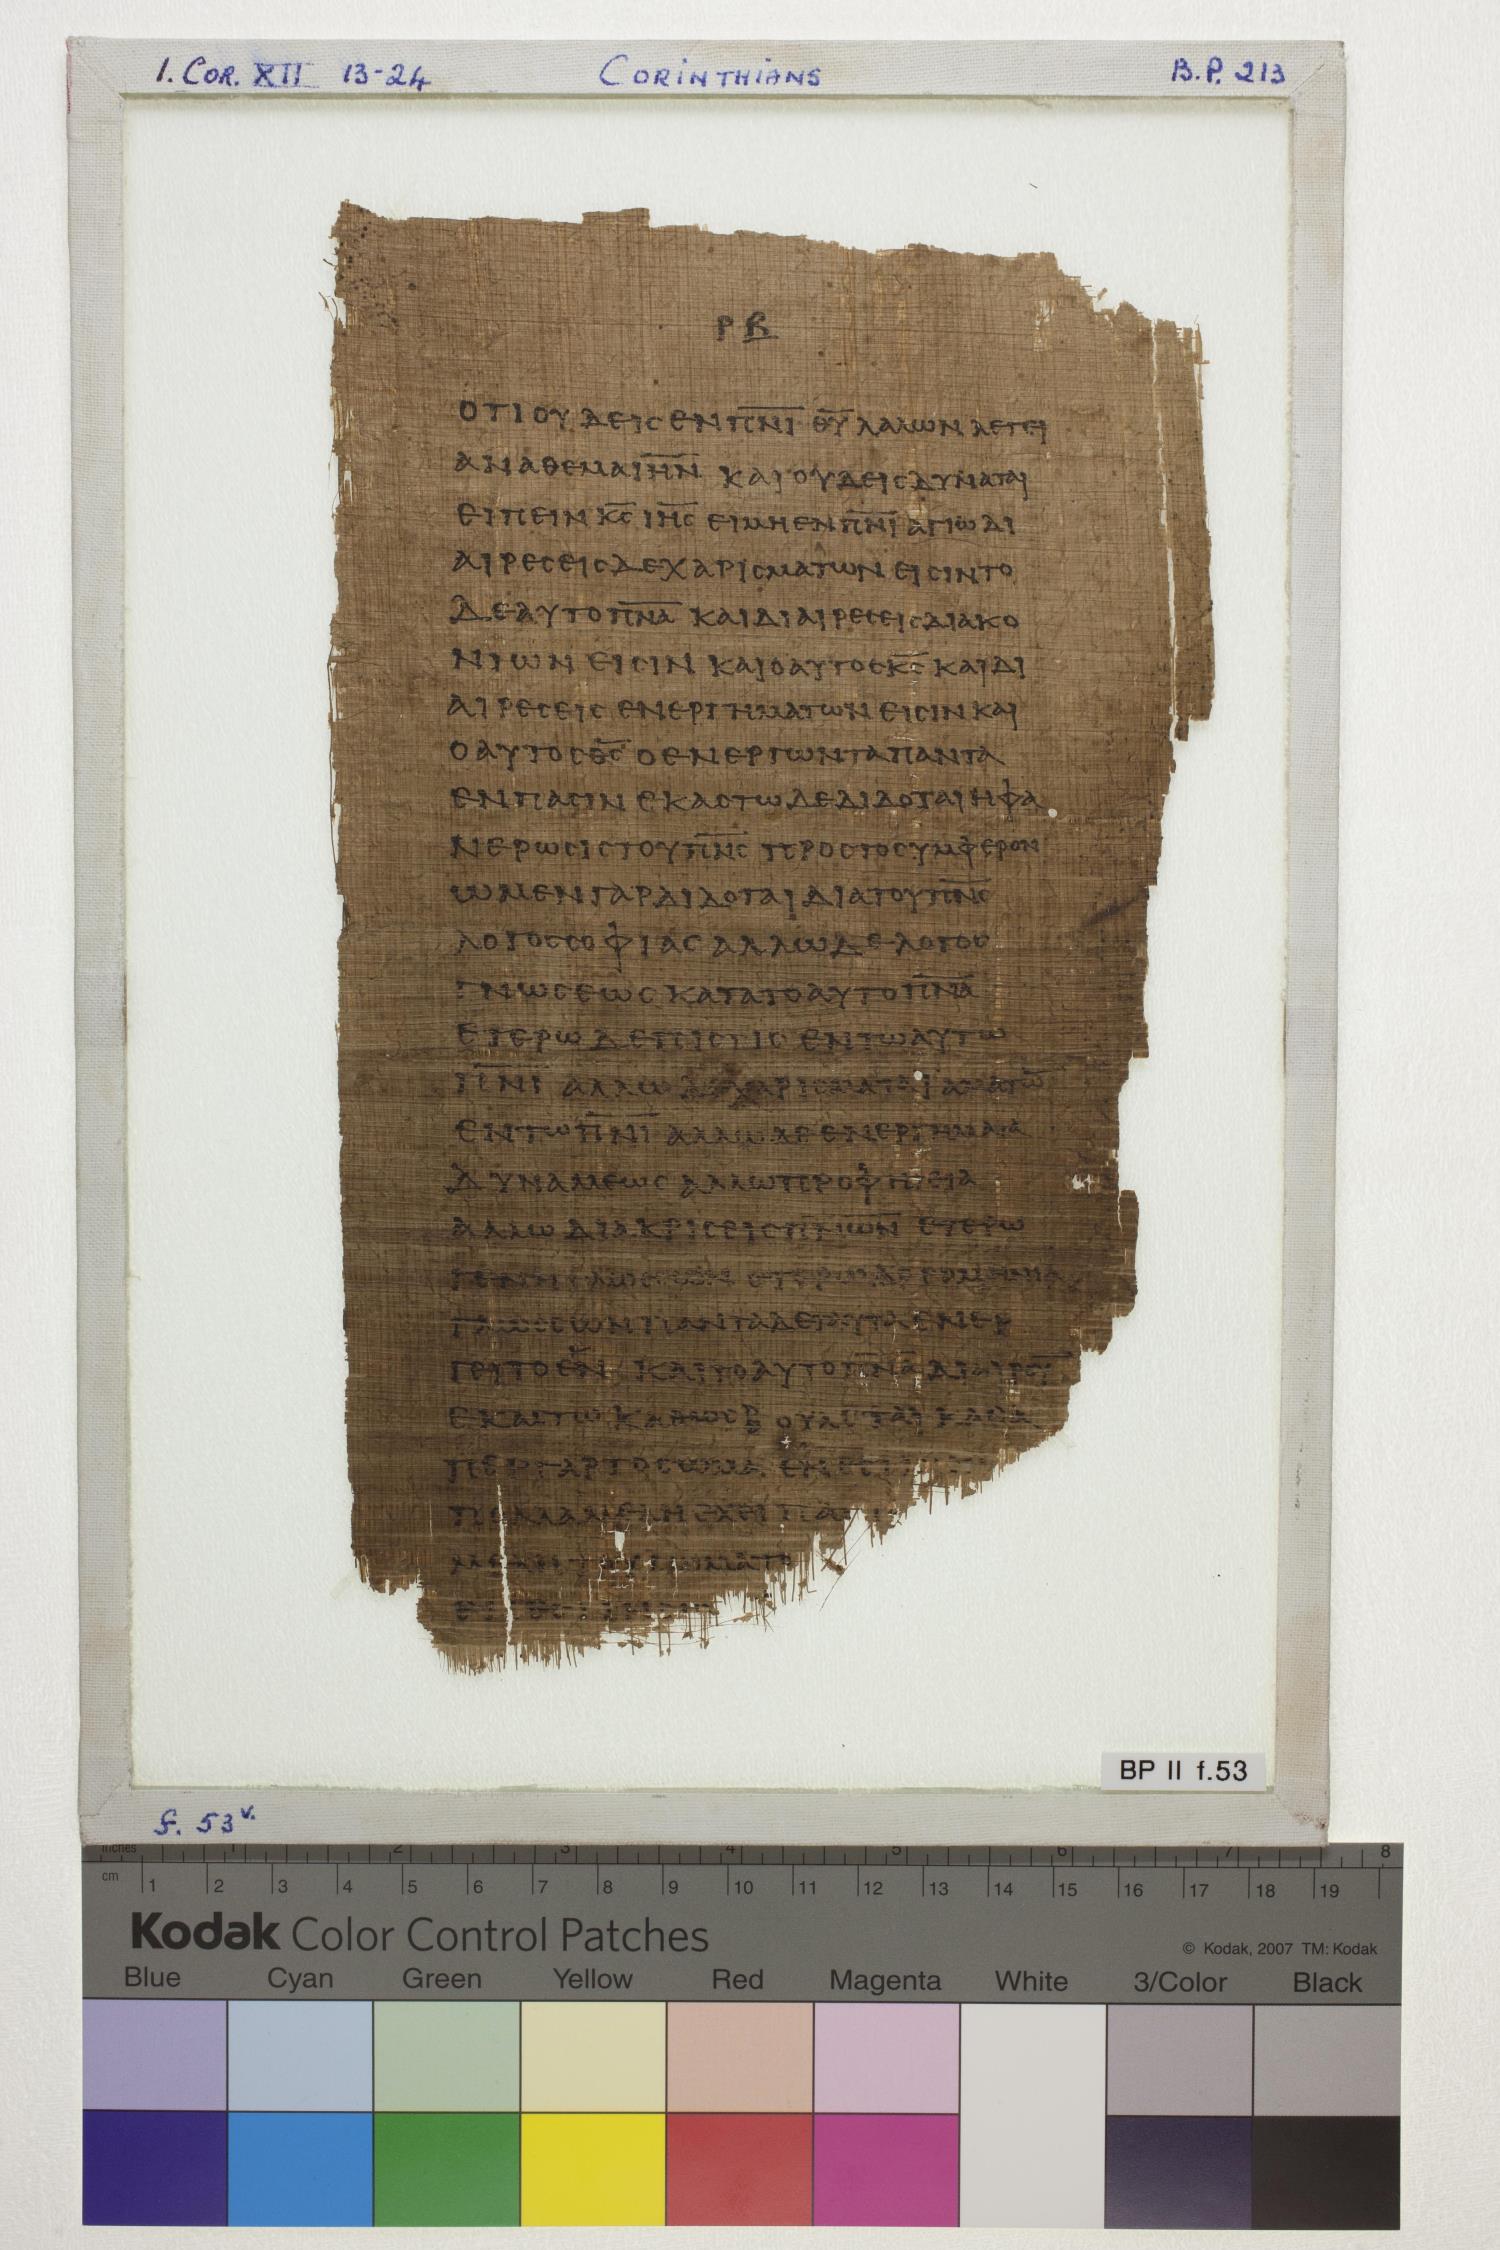 1. COR. XII 13-24 CORINTHIANS B.P. 213
ΡΒ
ΟΤΙ ΟΥΔΕΙϹ ΕΝ Π̅Ν̅Ι̅ Θ̅Υ̅ ΛΑΛΩΝ ΛΕΓΕΙ
ΑΝΑΘΕΜΑ Ι̅Η̅Ν̅ ΚΑΙ ΟΥΔΕΙϹ ΔΥΝΑΤΑΙ
ΕΙΠΕΙΝ Κ̅Ϲ̅ Ι̅Η̅Ϲ̅ ΕΙ ΜΗ ΕΝ Π̅Ν̅Ι̅ ΑΓΙΩ ΔΙ
ΑΙΡΕϹΕΙϹ ΔΕ ΧΑΡΙϹΜΑΤΩΝ ΕΙϹΙΝ ΤΟ
ΔΕ ΑΥΤΟ Π̅Ν̅Α̅ ΚΑΙ ΔΙΑΙΡΕϹΕΙϹ ΔΙΑΚΟ
ΝΙΩΝ ΕΙϹΙΝ ΚΑΙ Ο ΑΥΤΟϹ Κ̅Ϲ̅ ΚΑΙ ΔΙ
ΑΙΡΕϹΕΙϹ ΕΝΕΡΓΗΜΑΤΩΝ ΕΙϹΙΝ ΚΑΙ
Ο ΑΥΤΟϹ Θ̅Ϲ̅ Ο ΕΝΕΡΓΩΝ ΤΑ ΠΑΝΤΑ
ΕΝ ΠΑϹΙΝ ΕΚΑϹΤΩ ΔΕ ΔΙΔΟΤΑΙ Η ΦΑ
ΝΕΡΩϹΙϹ ΤΟΥ Π̅Ν̅Ϲ̅ ΠΡΟϹ ΤΟ ϹΥΜΦΕΡΟΝ
Ω ΜΕΝ ΓΑΡ ΔΙΔΟΤΑΙ ΔΙΑ ΤΟΥ Π̅Ν̅Ϲ̅
ΛΟΓΟϹ ϹΟΦΙΑϹ ΑΛΛΩ ΔΕ ΛΟΓΟϹ
ΓΝΩϹΕΩϹ ΚΑΤΑ ΤΟ ΑΥΤΟ Π̅Ν̅Α̅
ΕΤΕΡΩ ΔΕ ΠΙϹΤΙϹ ΕΝ ΤΩ ΑΥΤΩ
Π̅Ν̅Ι̅ ΑΛΛΩ ΔΕ ΧΑΡΙϹΜΑΤΑ ΙΑΜΑΤΩ̅
ΕΝ ΤΩ Π̅Ν̅Ι̅ ΑΛΛΩ ΔΕ ΕΝΕΡΓΗΜΑΤΑ
ΔΥΝΑΜΕΩϹ ΑΛΛΩ ΠΡΟΦΗΤΕΙΑ
ΑΛΛΩ ΔΙΑΚΡΙϹΕΙϹ Π̅Ν̅Ω̅Ν̅ ΕΤΕΡΩ
ΓΕΝΗ ΓΛΩϹϹΩΝ ΕΤΕΡΩ ΔΕ
ΓΛΩϹϹΩΝ ΠΑΝΤΑ ΔΕ ΤΑΥΤΑ ΕΝΕΡ
ΓΕΙ ΤΟ ΕΝ ΚΑΙ ΤΟ ΑΥΤΟ Π̅Ν̅Α̅ ΔΙΑΙΡΟΥ̅
ΕΚΑϹΤΩ ΚΑΘΩϹ ΒΟΥΛΕΤΑΙ ΚΑΘΑ
ΠΕΡ ΓΑΡ ΤΟ ϹΩΜΑ ΕΝ ΕϹΤΙΝ
ΠΟΛΛΑ ΜΕΛΗ ΕΧΕΙ ΠΑΝΤΑ
ΜΕΛΗ ΤΟΥ ϹΩΜΑΤΟ
BP II f.53
f. 53v.
inches 1 2 3 4 5 6 7 8
cm 1 2 3 4 5 6 7 8 9 10 11 12 13 14 15 16 17 18 19
Kodak Color Control Patches
© Kodak, 2007 TM: Kodak
Blue Cyan Green Yellow Red Magenta White 3/Color Black